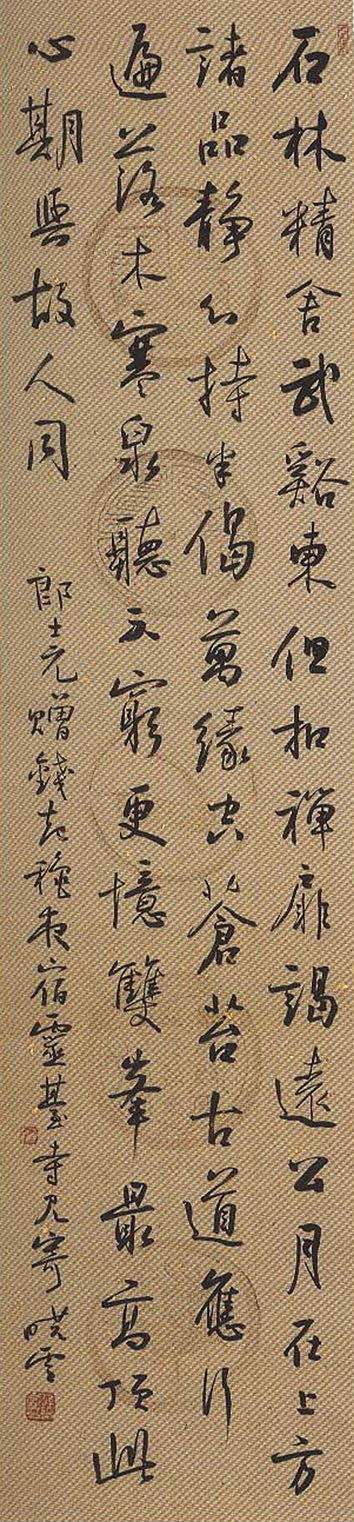 石林精舍武谿東但扣禪扉謁遠公月在上方
諸品靜心持半偈萬緣空蒼苔古道應行
遍落木寒泉聽不窮更憶雙峯最高頂此
心期與故人同
郎士元贈錢起穐夜宿靈臺寺見寄 曉雲